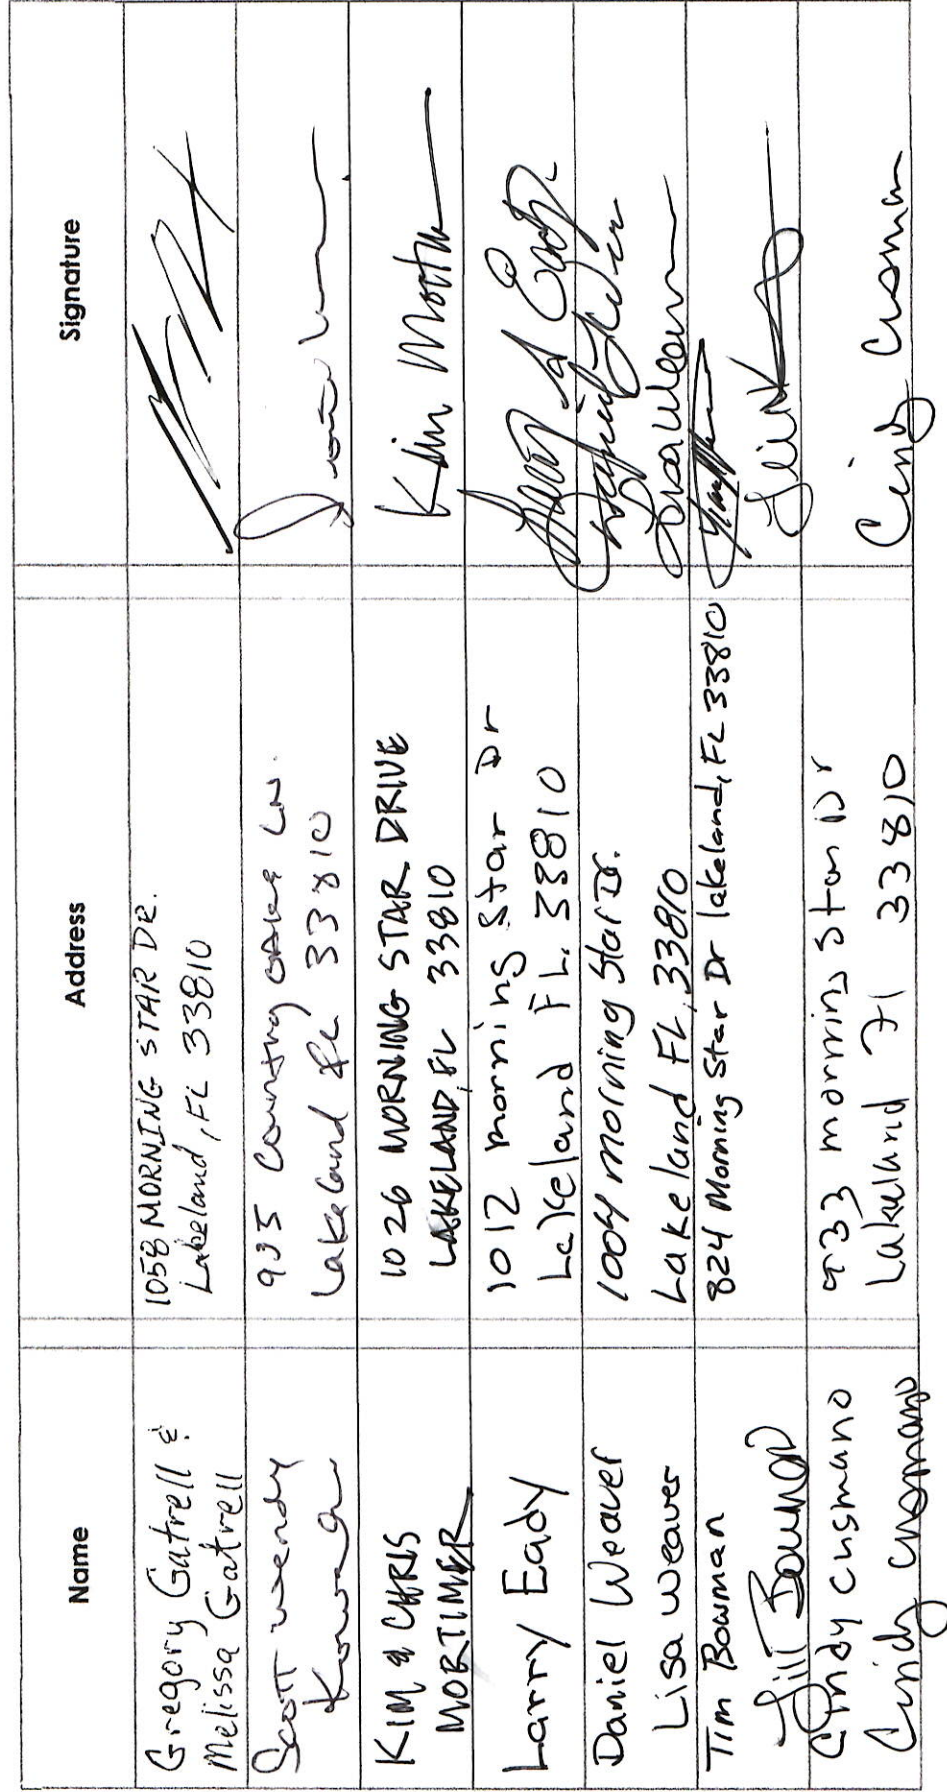 Name Address Signature
Gregory Gatrell &
Melissa Gatrell
1058 MORNING STAR DR.
Lakeland, FL 33810
Scott Wendy
935 Country Oaks LN.
Lakeland FL 33810
KIM & CHRIS
MORTIMER
1026 MORNING STAR DRIVE
LAKELAND, FL 33810
Kim
Larry Eady
1012 morning Star Dr
Lakeland FL. 33810
Daniel Weaver
Lisa Weaver
1004 Morning Star Dr.
Lakeland FL, 33810
Lisa Weaver
Tim Bowman
Jill Bowman
824 Morning Star Dr Lakeland, FL 33810
Cindy Cusmano
Cindy Cusmano
933 morning Star Dr
Lakeland Fl 33810
Cindy